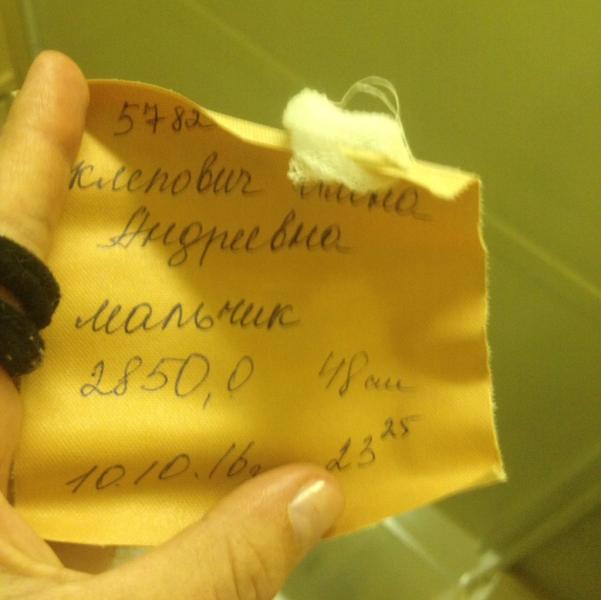 5782
Клепович
Андреевна
мальчик
2850,0 48 см
10.10.16г 23 25